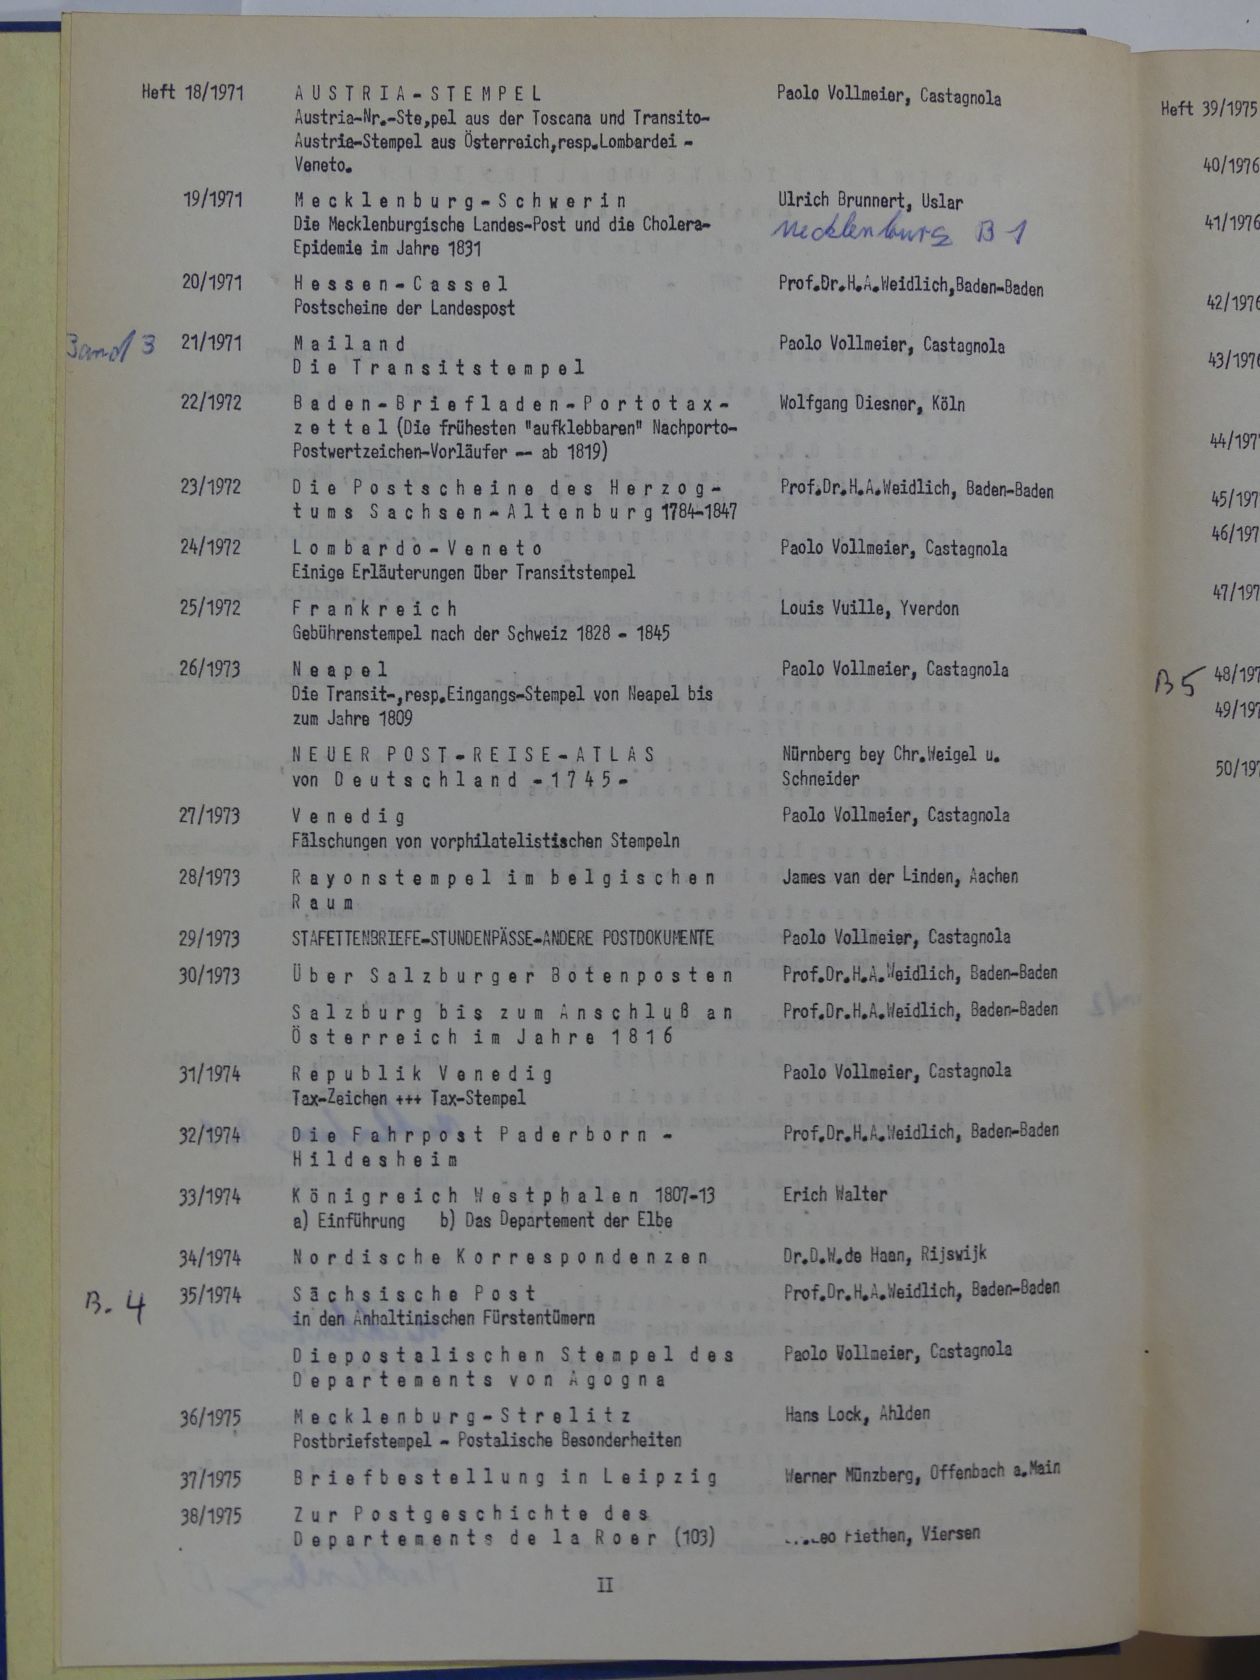 Heft 18/1971 AUSTRIA-STEMPEL Paolo Vollmeier, Castagnola
Austria-Nr.-Ste,pel aus der Toscana und Transito-
Austria-Stempel aus Österreich,resp.Lombardei -
Veneto.
19/1971 Mecklenburg-Schwerin Ulrich Brunnert, Uslar
Die Mecklenburgische Landes-Post und die Cholera- Mecklenburg B 1
Epidemie im Jahre 1831
20/1971 Hessen-Cassel Prof.Dr.H.A.Weidlich,Baden-Baden
Postscheine der Landespost
Band 3 21/1971 Mailand Paolo Vollmeier, Castagnola
Die Transitstempel
22/1972 Baden-Briefladen-Portotax- Wolfgang Diesner, Köln
zettel (Die frühesten "aufklebbaren" Nachporto-
Postwertzeichen-Vorläufer -- ab 1819)
23/1972 Die Postscheine des Herzog- Prof.Dr.H.A.Weidlich, Baden-Baden
tums Sachsen-Altenburg 1784-1847
24/1972 Lombardo-Veneto Paolo Vollmeier, Castagnola
Einige Erläuterungen über Transitstempel
25/1972 Frankreich Louis Vuille, Yverdon
Gebührenstempel nach der Schweiz 1828 - 1845
26/1973 Neapel Paolo Vollmeier, Castagnola
Die Transit-,resp.Eingangs-Stempel von Neapel bis
zum Jahre 1809
NEUER POST-REISE-ATLAS Nürnberg bey Chr.Weigel u.
von Deutschland -1745- Schneider
27/1973 Venedig Paolo Vollmeier, Castagnola
Fälschungen von vorphilatelistischen Stempeln
28/1973 Rayonstempel im belgischen James van der Linden, Aachen
Raum
29/1973 STAFETTENBRIEFE-STUNDENPÄSSE-ANDERE POSTDOKUMENTE Paolo Vollmeier, Castagnola
30/1973 Über Salzburger Botenposten Prof.Dr.H.A.Weidlich, Baden-Baden
Salzburg bis zum Anschluß an Prof.Dr.H.A.Weidlich, Baden-Baden
Österreich im Jahre 1816
31/1974 Republik Venedig Paolo Vollmeier, Castagnola
Tax-Zeichen +++ Tax-Stempel
32/1974 Die Fahrpost Paderborn - Prof.Dr.H.A.Weidlich, Baden-Baden
Hildesheim
33/1974 Königreich Westphalen 1807-13 Erich Walter
a) Einführung b) Das Departement der Elbe
34/1974 Nordische Korrespondenzen Dr.D.W.de Haan, Rijswijk
B. 4 35/1974 Sächsische Post Prof.Dr.H.A.Weidlich, Baden-Baden
in den Anhaltinischen Fürstentümern
Die postalischen Stempel des Paolo Vollmeier, Castagnola
Departements von Agogna
36/1975 Mecklenburg-Strelitz Hans Lock, Ahlden
Postbriefstempel - Postalische Besonderheiten
37/1975 Briefbestellung in Leipzig Werner Münzberg, Offenbach a.Main
38/1975 Zur Postgeschichte des
Departements de la Roer (103) Viersen
II
Heft 39/1975
40/1976
41/1976
42/1976
43/1976
44/197
45/197
46/197
47/197
B5 48/197
49/197
50/197